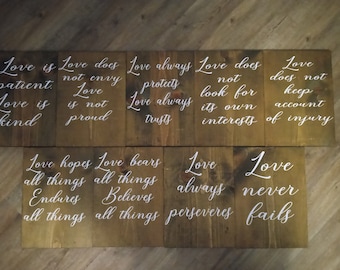 Love is
patient.
Love is
kind
Love does
not envy
Love
is not
proud
Love always
protects
Love always
trusts
Love
does not
look for
its own
interests
Love
does not
keep
account
of injury
Love hopes
all things
Endures
all things
Love bears
all things
Believes
all things
Love
always
perseveres
Love
never
fails